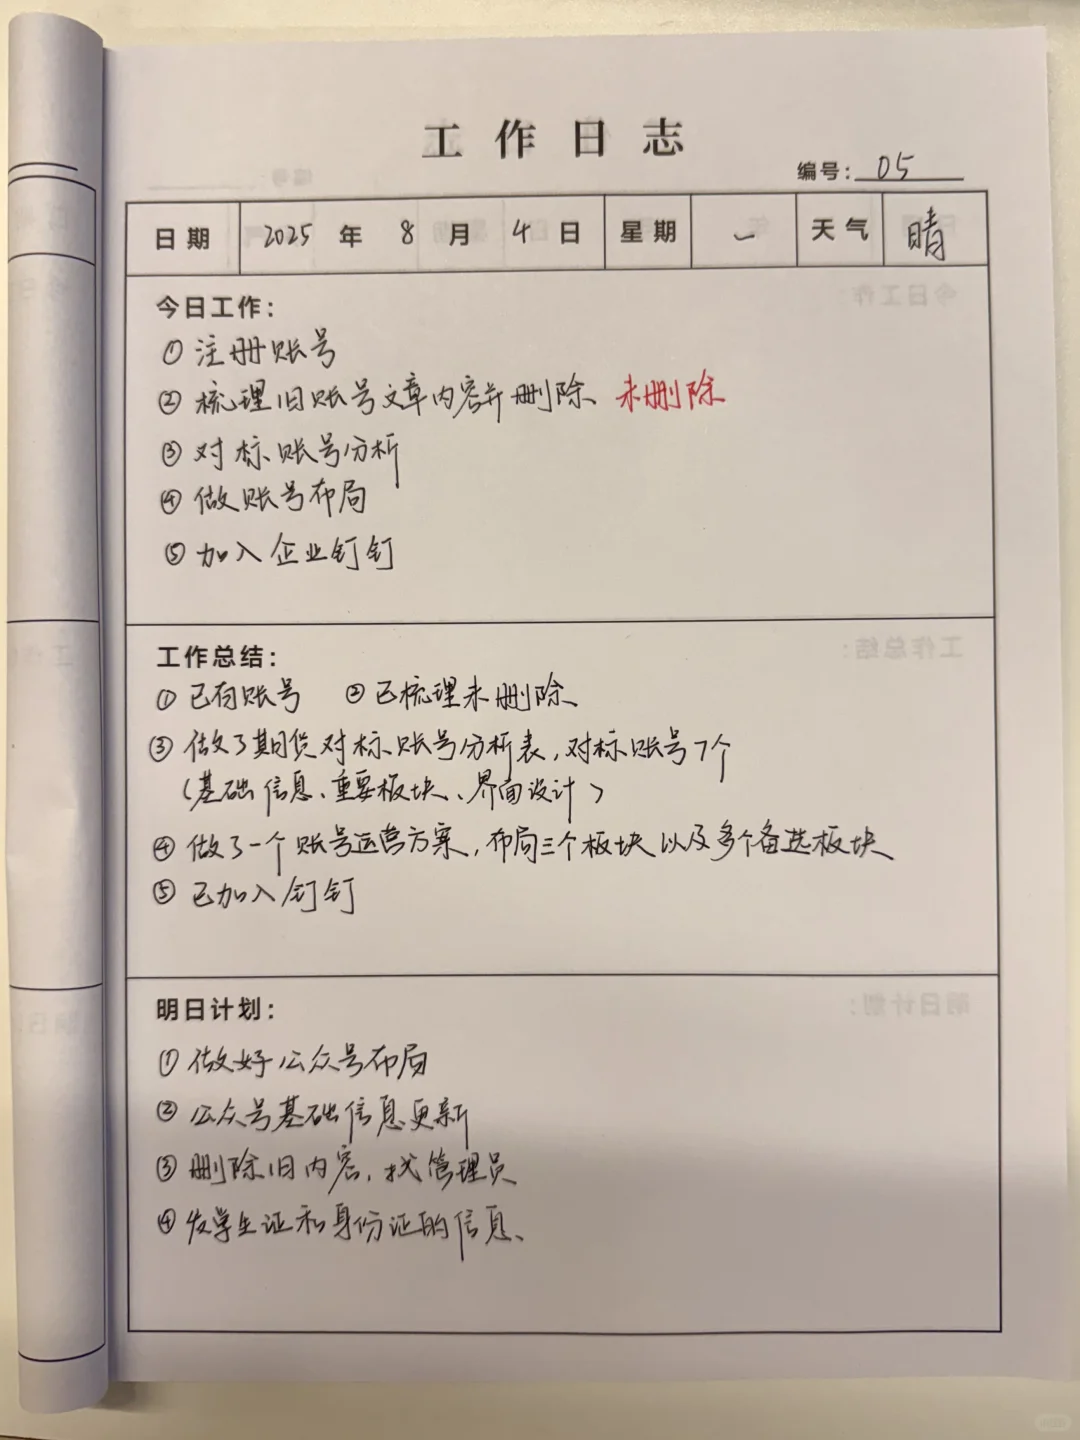 工作日志
编号：05
日期 2025 年 8 月 4 日 星期 一 天气 晴
今日工作：
① 注册账号
② 梳理旧账号文章内容并删除、未删除
③ 对标账号分析
④ 做账号布局
⑤ 加入企业钉钉
工作总结：
① 已有账号 ② 已梳理未删除
③ 做了期货对标账号分析表，对标账号7个
（基础信息、重要板块、界面设计）
④ 做了一个账号运营方案，布局三个板块以及多个备选板块
⑤ 已加入钉钉
明日计划：
① 做好公众号布局
② 公众号基础信息更新
③ 删除旧内容，找管理员
④ 发学生证和身份证的信息、